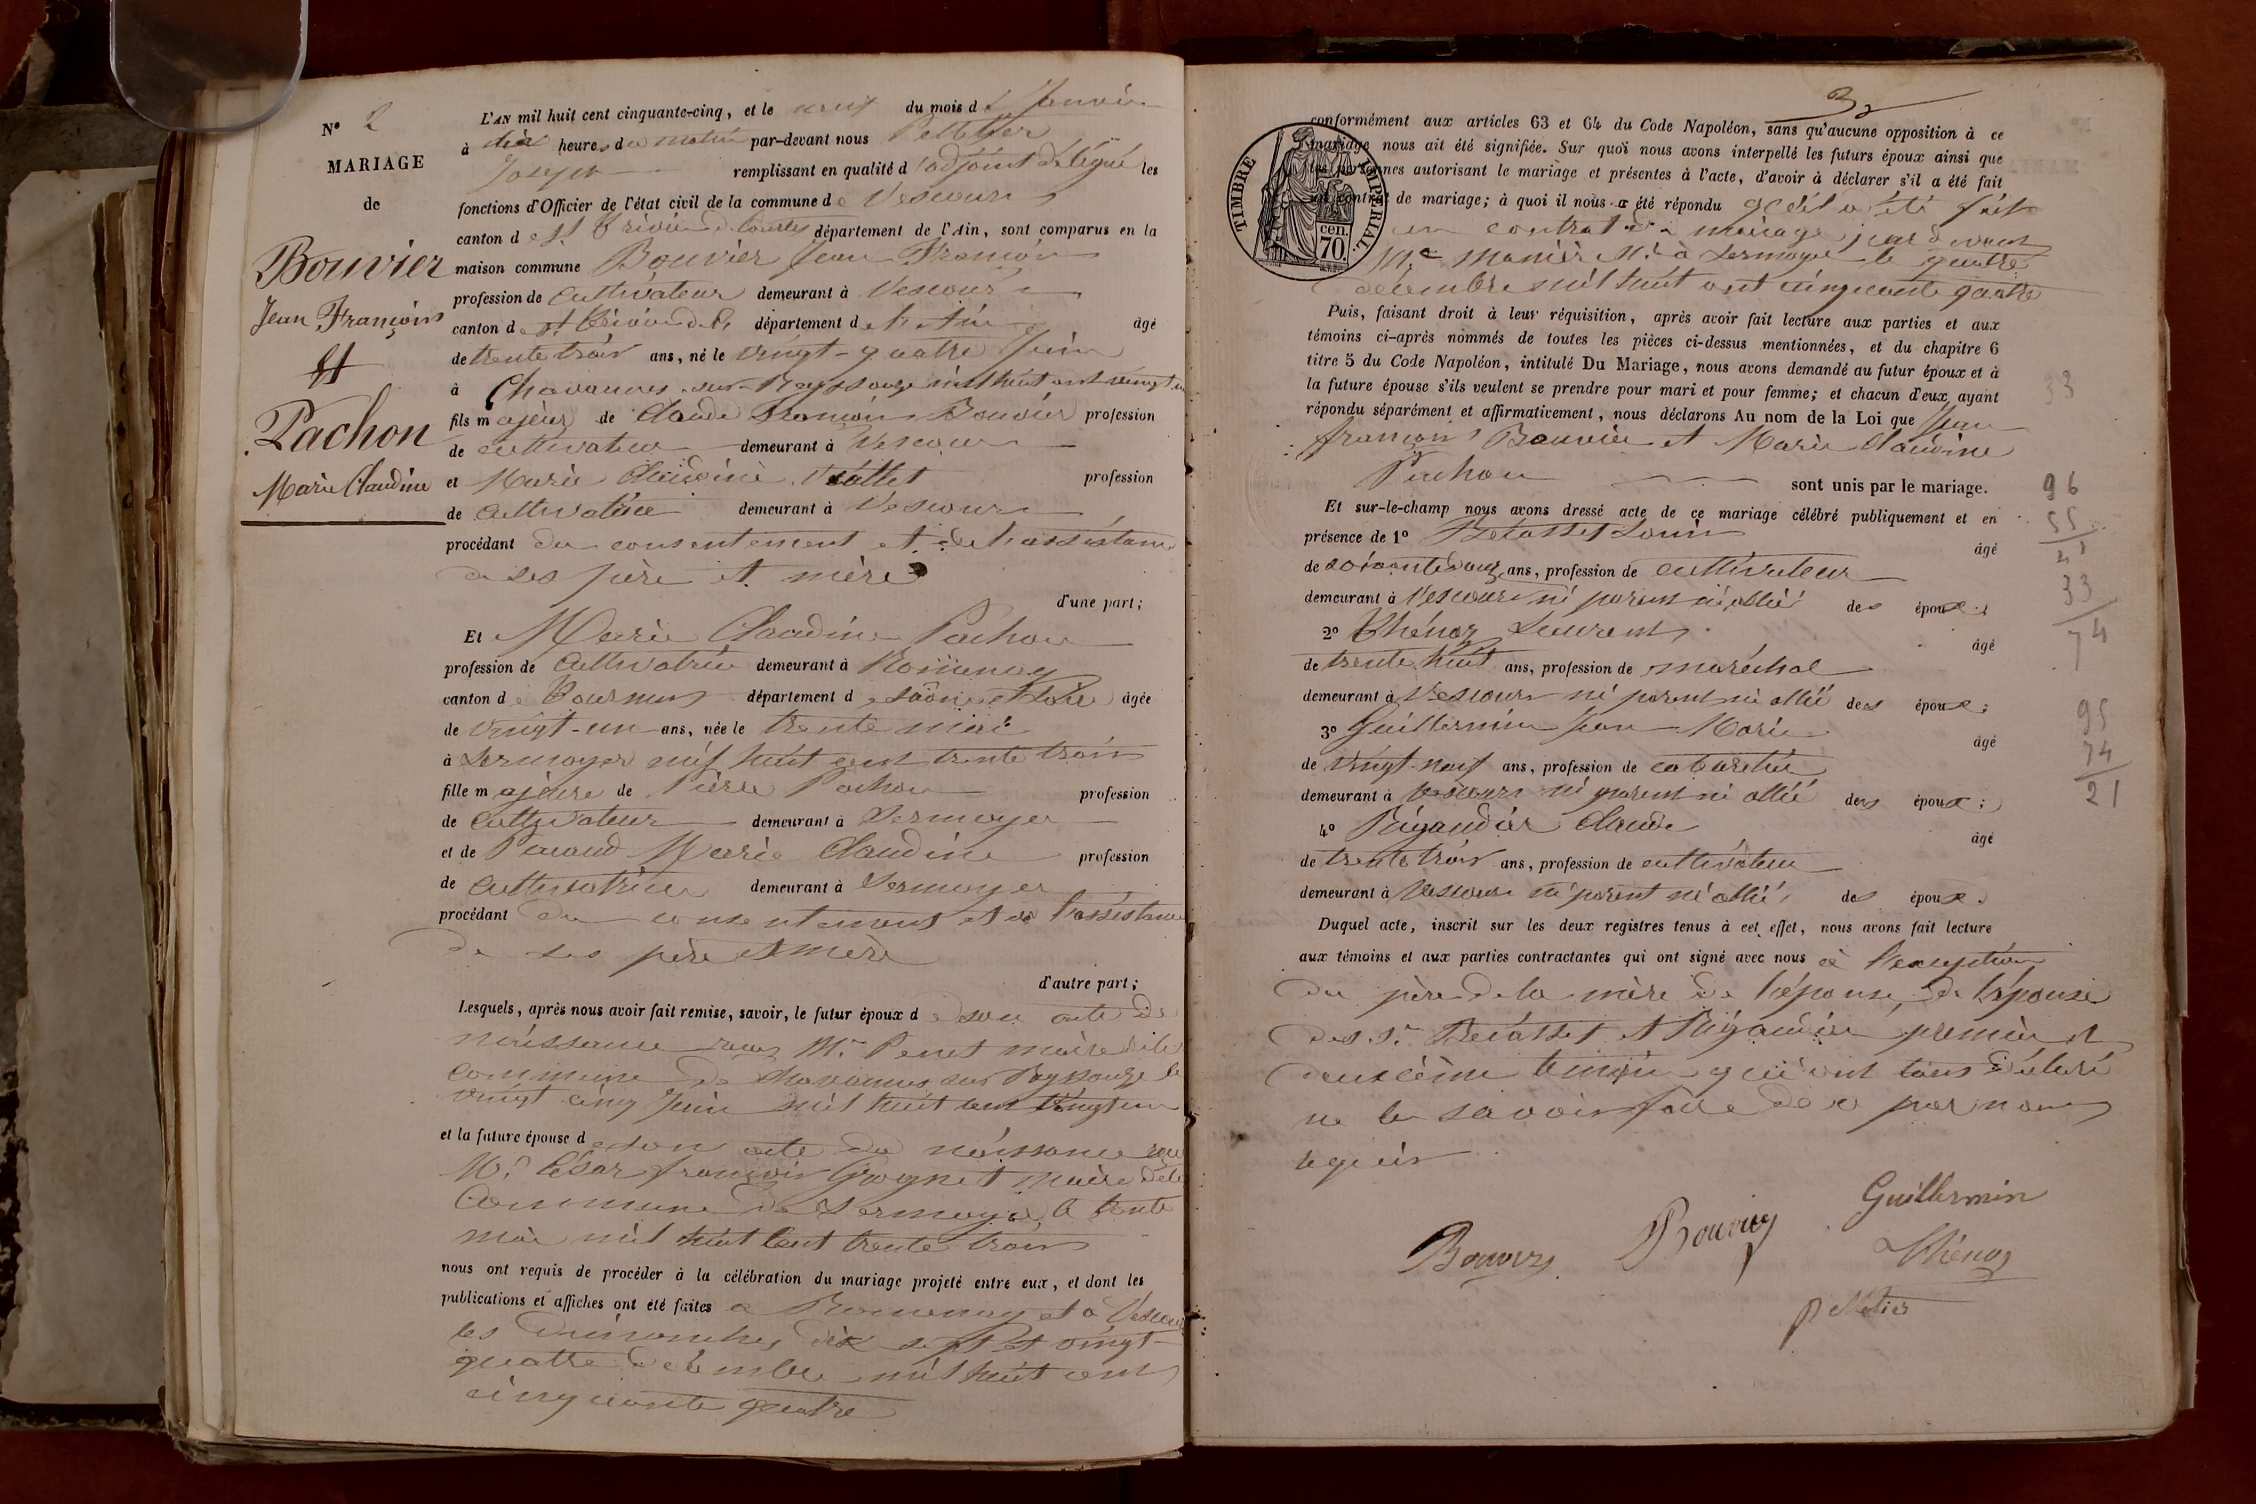 N° 2
MARIAGE
de
Bouvier
Jean François
Et
Pachon
Marie Claudine
L'AN mil huit cent cinquante-cinq, et le neuf du mois de Janvier
à dix heures du matin par-devant nous Pelletier
Joseph remplissant en qualité d'adjoint délégué les
fonctions d'Officier de l'état civil de la commune de Vescours
canton de St Trivier de Courtes département de l'Ain, sont comparus en la
maison commune Bouvier Jean François
profession de cultivateur demeurant à Vescours
canton de St Trivier de C. département de l'Ain âgé
de trente trois ans, né le vingt-quatre Juin
à Chavannes-sur-Reyssouze mil huit cent vingt un
fils majeur de Claude François Bouvier profession
de cultivateur demeurant à Vescours
et Marie Claudine profession
de cultivatrice demeurant à Vescours
procédant du consentement et de l'assistance
de ses père et mère
d'une part;
Et Marie Claudine Pachon
profession de cultivatrice demeurant à Romenay
canton de Tournus département de Saône et Loire âgée
de vingt-un ans, née le trente mai
à Sermoyer mil huit cent trente trois
fille majeure de Pierre Pachon profession
de cultivateur demeurant à Sermoyer
et de Marie Claudine profession
de cultivatrice demeurant à Sermoyer
procédant du consentement et de l'assistance
de ses père et mère
d'autre part;
Lesquels, après nous avoir fait remise, savoir, le futur époux de son acte de
naissance reçu Mr. Penet maire de la
commune de Chavannes sur Reyssouze le
vingt cinq Juin mil huit cent vingt un
et la future épouse de son acte de naissance reçu
Mr. César François maire de la
commune de Sermoyer, le trente
mai mil huit cent trente trois
nous ont requis de procéder à la célébration du mariage projeté entre eux, et dont les
publications et affiches ont été faites à Romenay et à Vescours
les dimanches dix sept et vingt-
quatre décembre mil huit cent
cinquante quatre
3
conformément aux articles 63 et 64 du Code Napoléon, sans qu'aucune opposition à ce
mariage nous ait été signifiée. Sur quoi nous avons interpellé les futurs époux ainsi que
les personnes autorisant le mariage et présentes à l'acte, d'avoir à déclarer s'il a été fait
un contrat de mariage; à quoi il nous a été répondu qu'il a été fait
un contrat de mariage par devant
Me. Manier Nre à Sermoyer le quatre
décembre mil huit cent cinquante quatre
TIMBRE IMPÉRIAL.
cen.
70.
Puis, faisant droit à leur réquisition, après avoir fait lecture aux parties et aux
témoins ci-après nommés de toutes les pièces ci-dessus mentionnées, et du chapitre 6
titre 5 du Code Napoléon, intitulé Du Mariage, nous avons demandé au futur époux et à
la future épouse s'ils veulent se prendre pour mari et pour femme; et chacun d'eux ayant
répondu séparément et affirmativement, nous déclarons Au nom de la Loi que Jean
françois Bouvier et Marie Claudine
Pachon sont unis par le mariage.
Et sur-le-champ nous avons dressé acte de ce mariage célébré publiquement et en
présence de 1° Louis âgé
de soixante douze ans, profession de cultivateur
demeurant à Vescours ni parent ni allié des époux;
2° Thénoz Laurent âgé
de trente huit ans, profession de maréchal
demeurant à Vescours ni parent ni allié des époux;
3° Guillermin Jean Marie âgé
de vingt-neuf ans, profession de cabaretier
demeurant à Vescours ni parent ni allié des époux;
4° Rigaudier Claude âgé
de trente trois ans, profession de cultivateur
demeurant à Vescours ni parent ni allié des époux.
Duquel acte, inscrit sur les deux registres tenus à cet effet, nous avons fait lecture
aux témoins et aux parties contractantes qui ont signé avec nous à l'exception
du père de la mère de l'épouse, de l'épouse
des Sr. et Rigaudier premier et
deuxième témoin qui ont tous déclaré
ne le savoir faire de ce par nous
requis
Bouvier
Bouvier
Guillermin
Thénoz
Pelletier
33
96
55
41
33
74
95
74
21